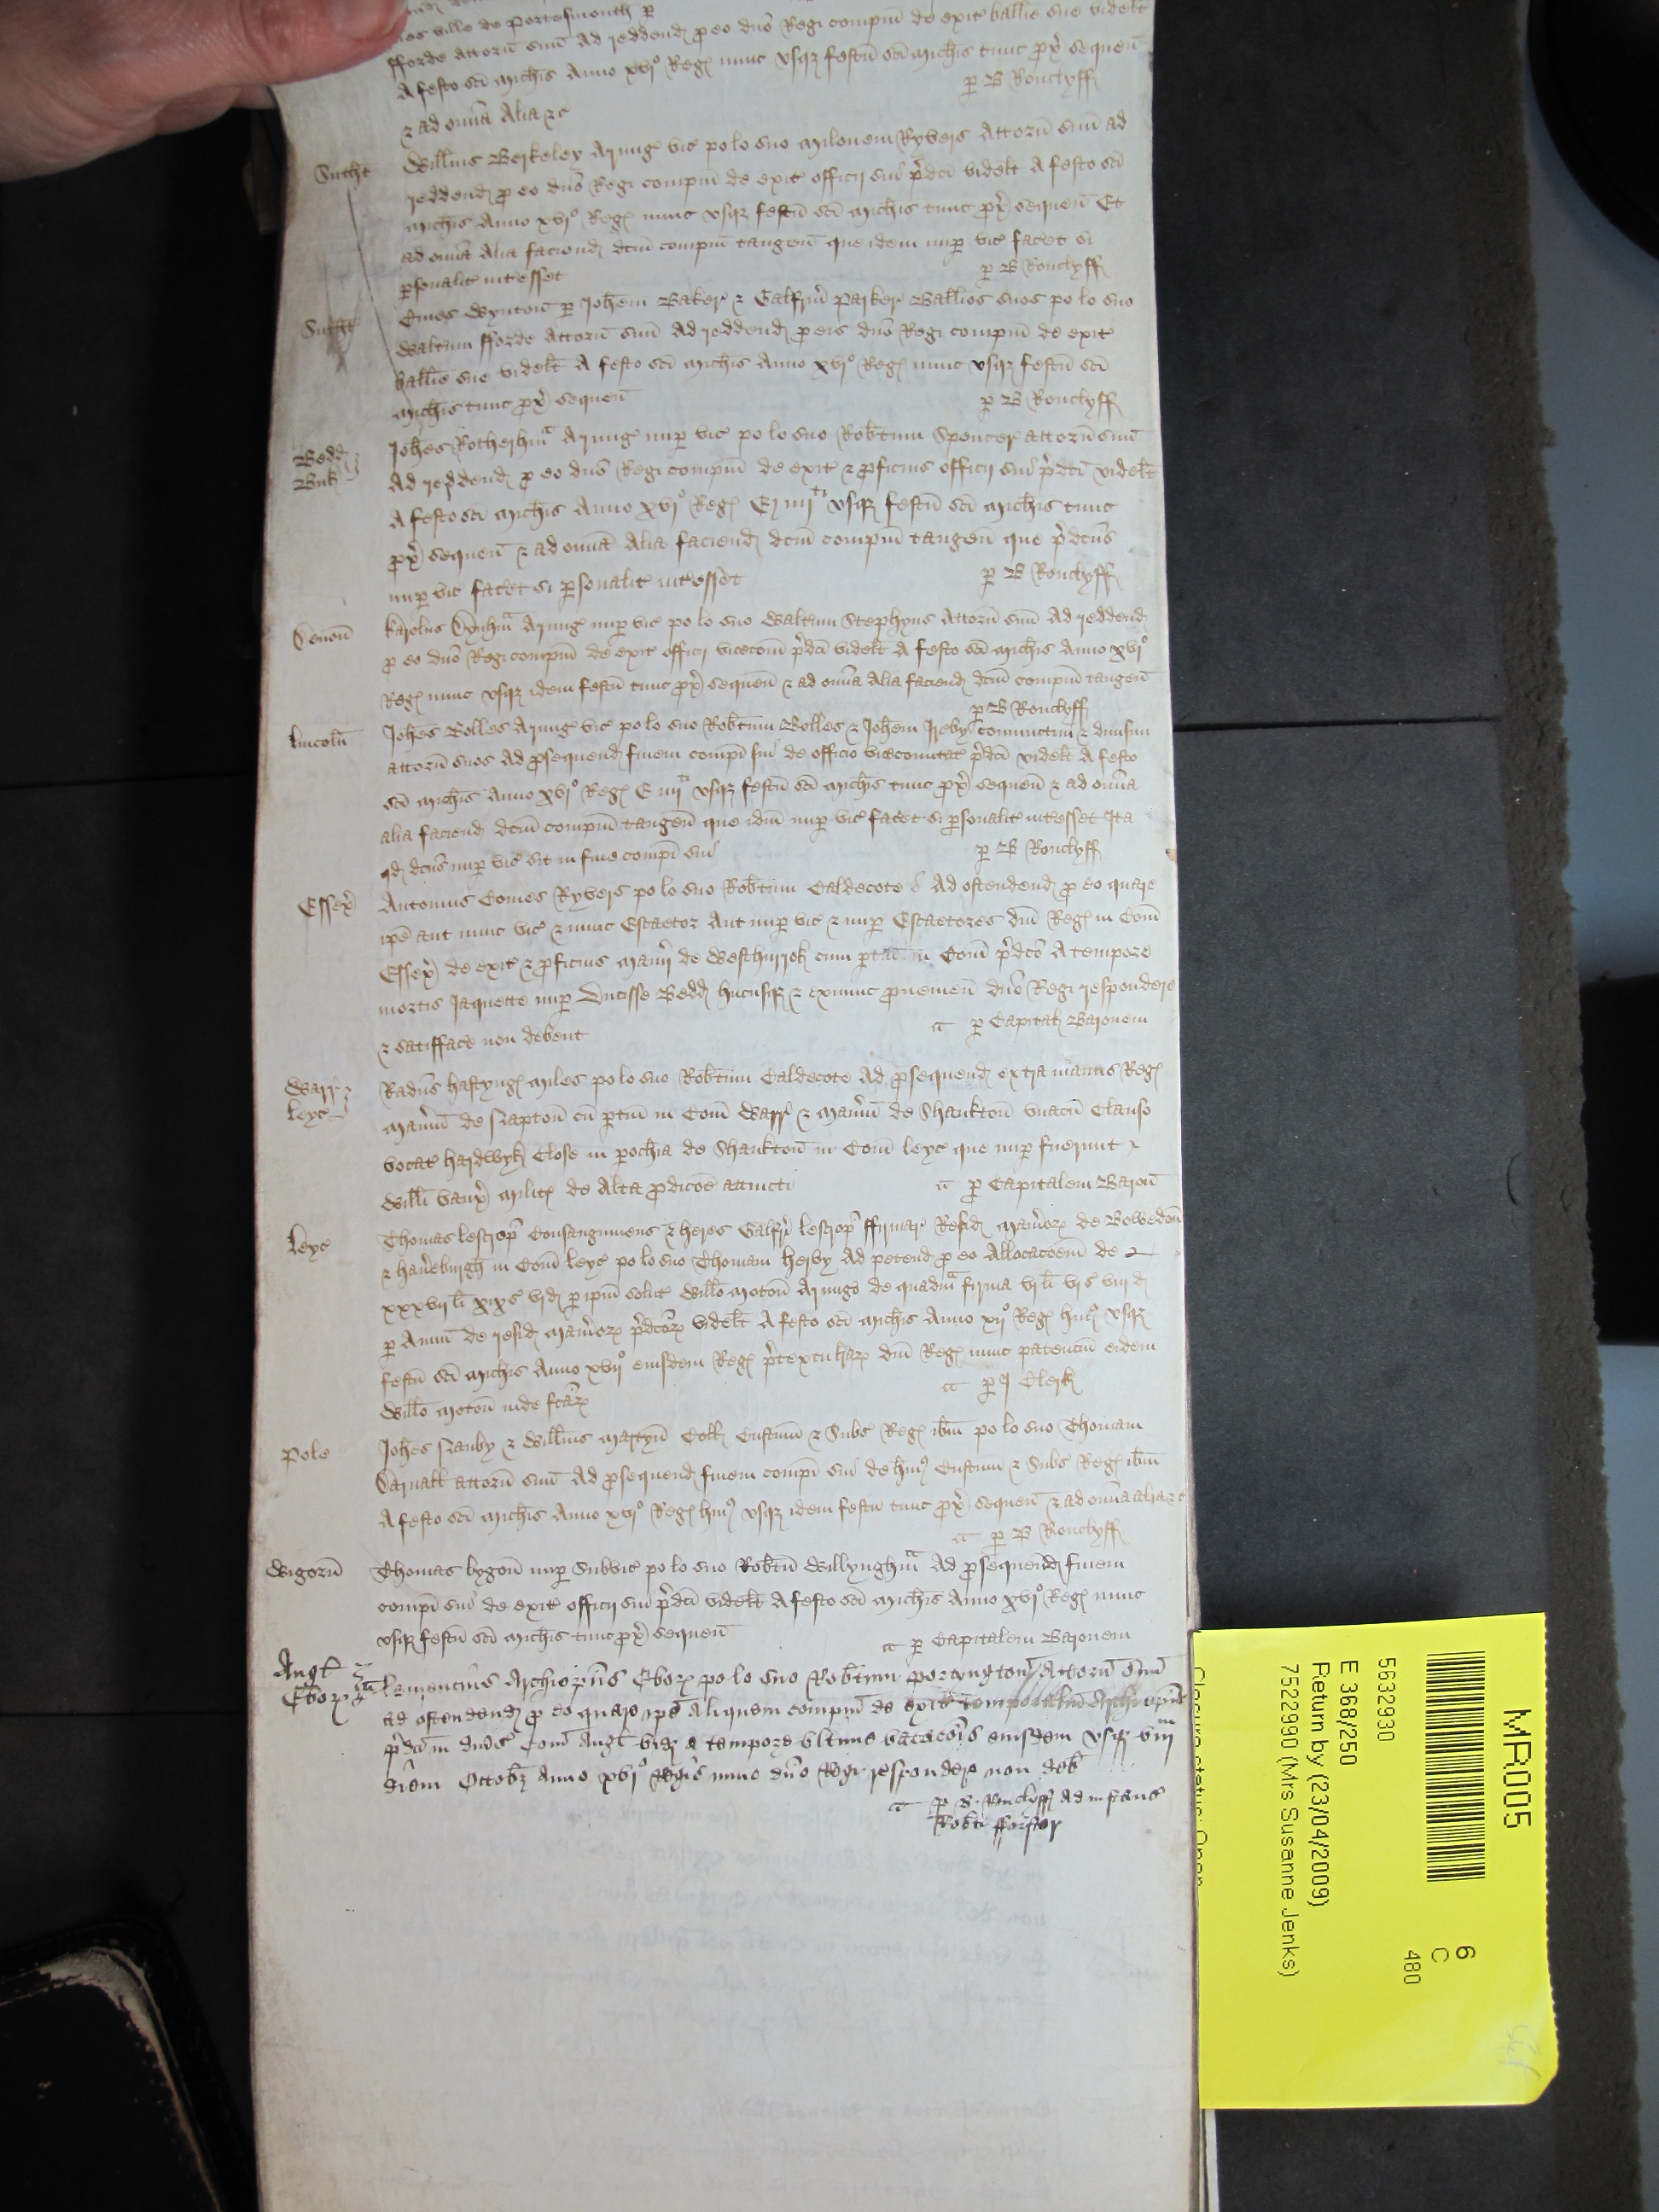 ville de Portesmouth p
fforde attorn suu Ad reddend p eo dno Regi compm de exit ballie sue videlt
A festo sci Michis Anno xvjo Reg nunc usq festu sci Michis tunc px sequen
& ad omia Alia &c p B Rouclyff
Sutht Willms Berkeley Armig vic po lo suo Milonem Ryvers Attorn suu ad
reddend p eo dno Regi compm de exit officij sui pdci videlt A festo sci
Michis Anno xvjo Reg nunc usq festu sci Michis tunc px sequen Et
ad omia Alia faciend dcm compm tangen que idem nup vic facet si
psonalit intesset p B Rouclyff
Cives Wynton p Johem Baker & Galfrm Parker Ballios suos po lo suo
Waltum fforde Attorn suu Ad reddend p eis dno Regi compm de exit
ballie sue videlt A festo sci Michis Anno xvjo Reg nunc usq festu sci
Michis tunc px sequen p B Rouclyff
Bedd & Buk Johes Rotherhm Armig nup vic po lo suo Robtum Spencer attorn suu
Ad reddend p eo dno Regi compm de exit & pficuis officij sui pdci videlt
A festo sci Michis Anno xvjo Reg E iiijti usq festu sci Michis tunc
px sequen & ad omia Alia faciend dcm compm tangen que pdcus
nup vic facet si psonalit intesset p B Rouclyff
Devon Karolus Dynhm Armig nup vic po lo suo Waltum Stephyns Attorn suu Ad reddend
p eo dno Regi compm de exit officij vicecom pdci videlt A festo sci Michis Anno xvjo
Reg nunc usq idem festu tunc px sequen & ad omia Alia faciend dcm compm tangen
p B Rouclyff
Lincoln Johes Bolles Armig vic po lo suo Robtum Bolles & Johem Ireby conjunctim & divisim
attorn suos Ad psequend finem compi sui de officio vicecomitat pdci videlt A festo
sci Michis Anno xvjo Reg E iiijti usq festu sci Michis tunc px sequen & ad omia
alia faciend dcm compm tangen que idm nup vic facet si psonalit intesset Ita
qd dcus nup vic sit in fine compi sui p B Rouclyff
Essex Antonius Comes Ryvers po lo suo Robtum Caldecote Ad ostendend p eo quare
ipe aut nunc vic & nunc Escaetor Aut nup vic & nup Escaetores dni Reg in Com
Essex de exit & pficuis Manij de Westhurrok cum ptin in Com pdco A tempore
mortis Jaquette nup Ducisse Bedd hucusq & exnunc pvenien dno Regi respondere
& satisface non debent a p Capital Baronem
Warr & Leyc Radus hastyng Miles po lo suo Robtum Caldecote Ad psequend extra manus Reg
Manm de Napton cu ptin in Com Warr & Manm de Shankton unacu Clauso
vocat hardwyk Close in pochia de Shankton in Com Leyc que nup fuerunt
Willi Vaux Milit de Alta pdicoe attincti a p Capitalem Baron
Leyc Thomas Lescrop Consanguineus & heres Galfri Lescrop ffirmar Resid Manior de Bowedon
& haveburgh in Com Leyc po lo suo Thomam herby Ad petend p eo Allocacoem de
xxxvij li xixs vjd p ipm solut Willo Moton Armigo de quadm firma vj li vjs viij d
p Annu de resid Manior pdcor videlt A festo sci Michis Anno xijo Reg huj usq
festu sci Michis Anno xvijo eiusdem Reg ptextu har dni Reg nunc patenciu eidem
Willo Moton inde fcar a p J Clerk
Pole Johes Nanby & Willms Martyn Coll Custum & Subs Reg ibm po lo suo Thomam
Darnall attorn suu Ad psequend finem compi sui de hmoi Custum & Subs Reg ibm
A festo sci Michis Anno xvjo Reg huj usq idem festu tunc px sequen & ad omia alia &c
a p B Rouclyff
Wigorn Thomas bygon nup Subvic po lo suo Robtu Willynghm Ad psequend finem
compi sui de exit officij sui pdci videlt A festo sci Michis Anno xvjo Reg nunc
usq festu sci Michis tunc px sequen a p Capitalem Baronem
Angl Ebor Laurencius Archiepus Ebor po lo suo Robtum Portyngton Attorn suu
ad ostendend p eo quare ipe Aliquem compm de exit temporaliu Archiepat
pdci in divs Com Angl viz a tempore ultime vacacois eiusdem usq viij
diem Octobr Anno xvjo Regis nunc dno Regi respondere non deb
a p B Rouclyff Ad instanc
Robti fforster
MR005
6
C
480
5632930
E 368/250
Return by (23/04/2009)
7522990 (Mrs Susanne Jenks)
Closure status: Open